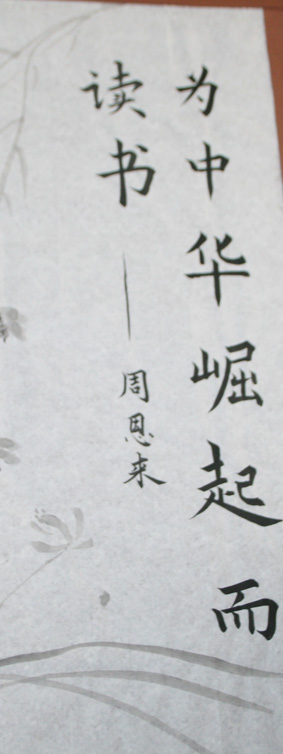 为中华崛起而
读书——周恩来